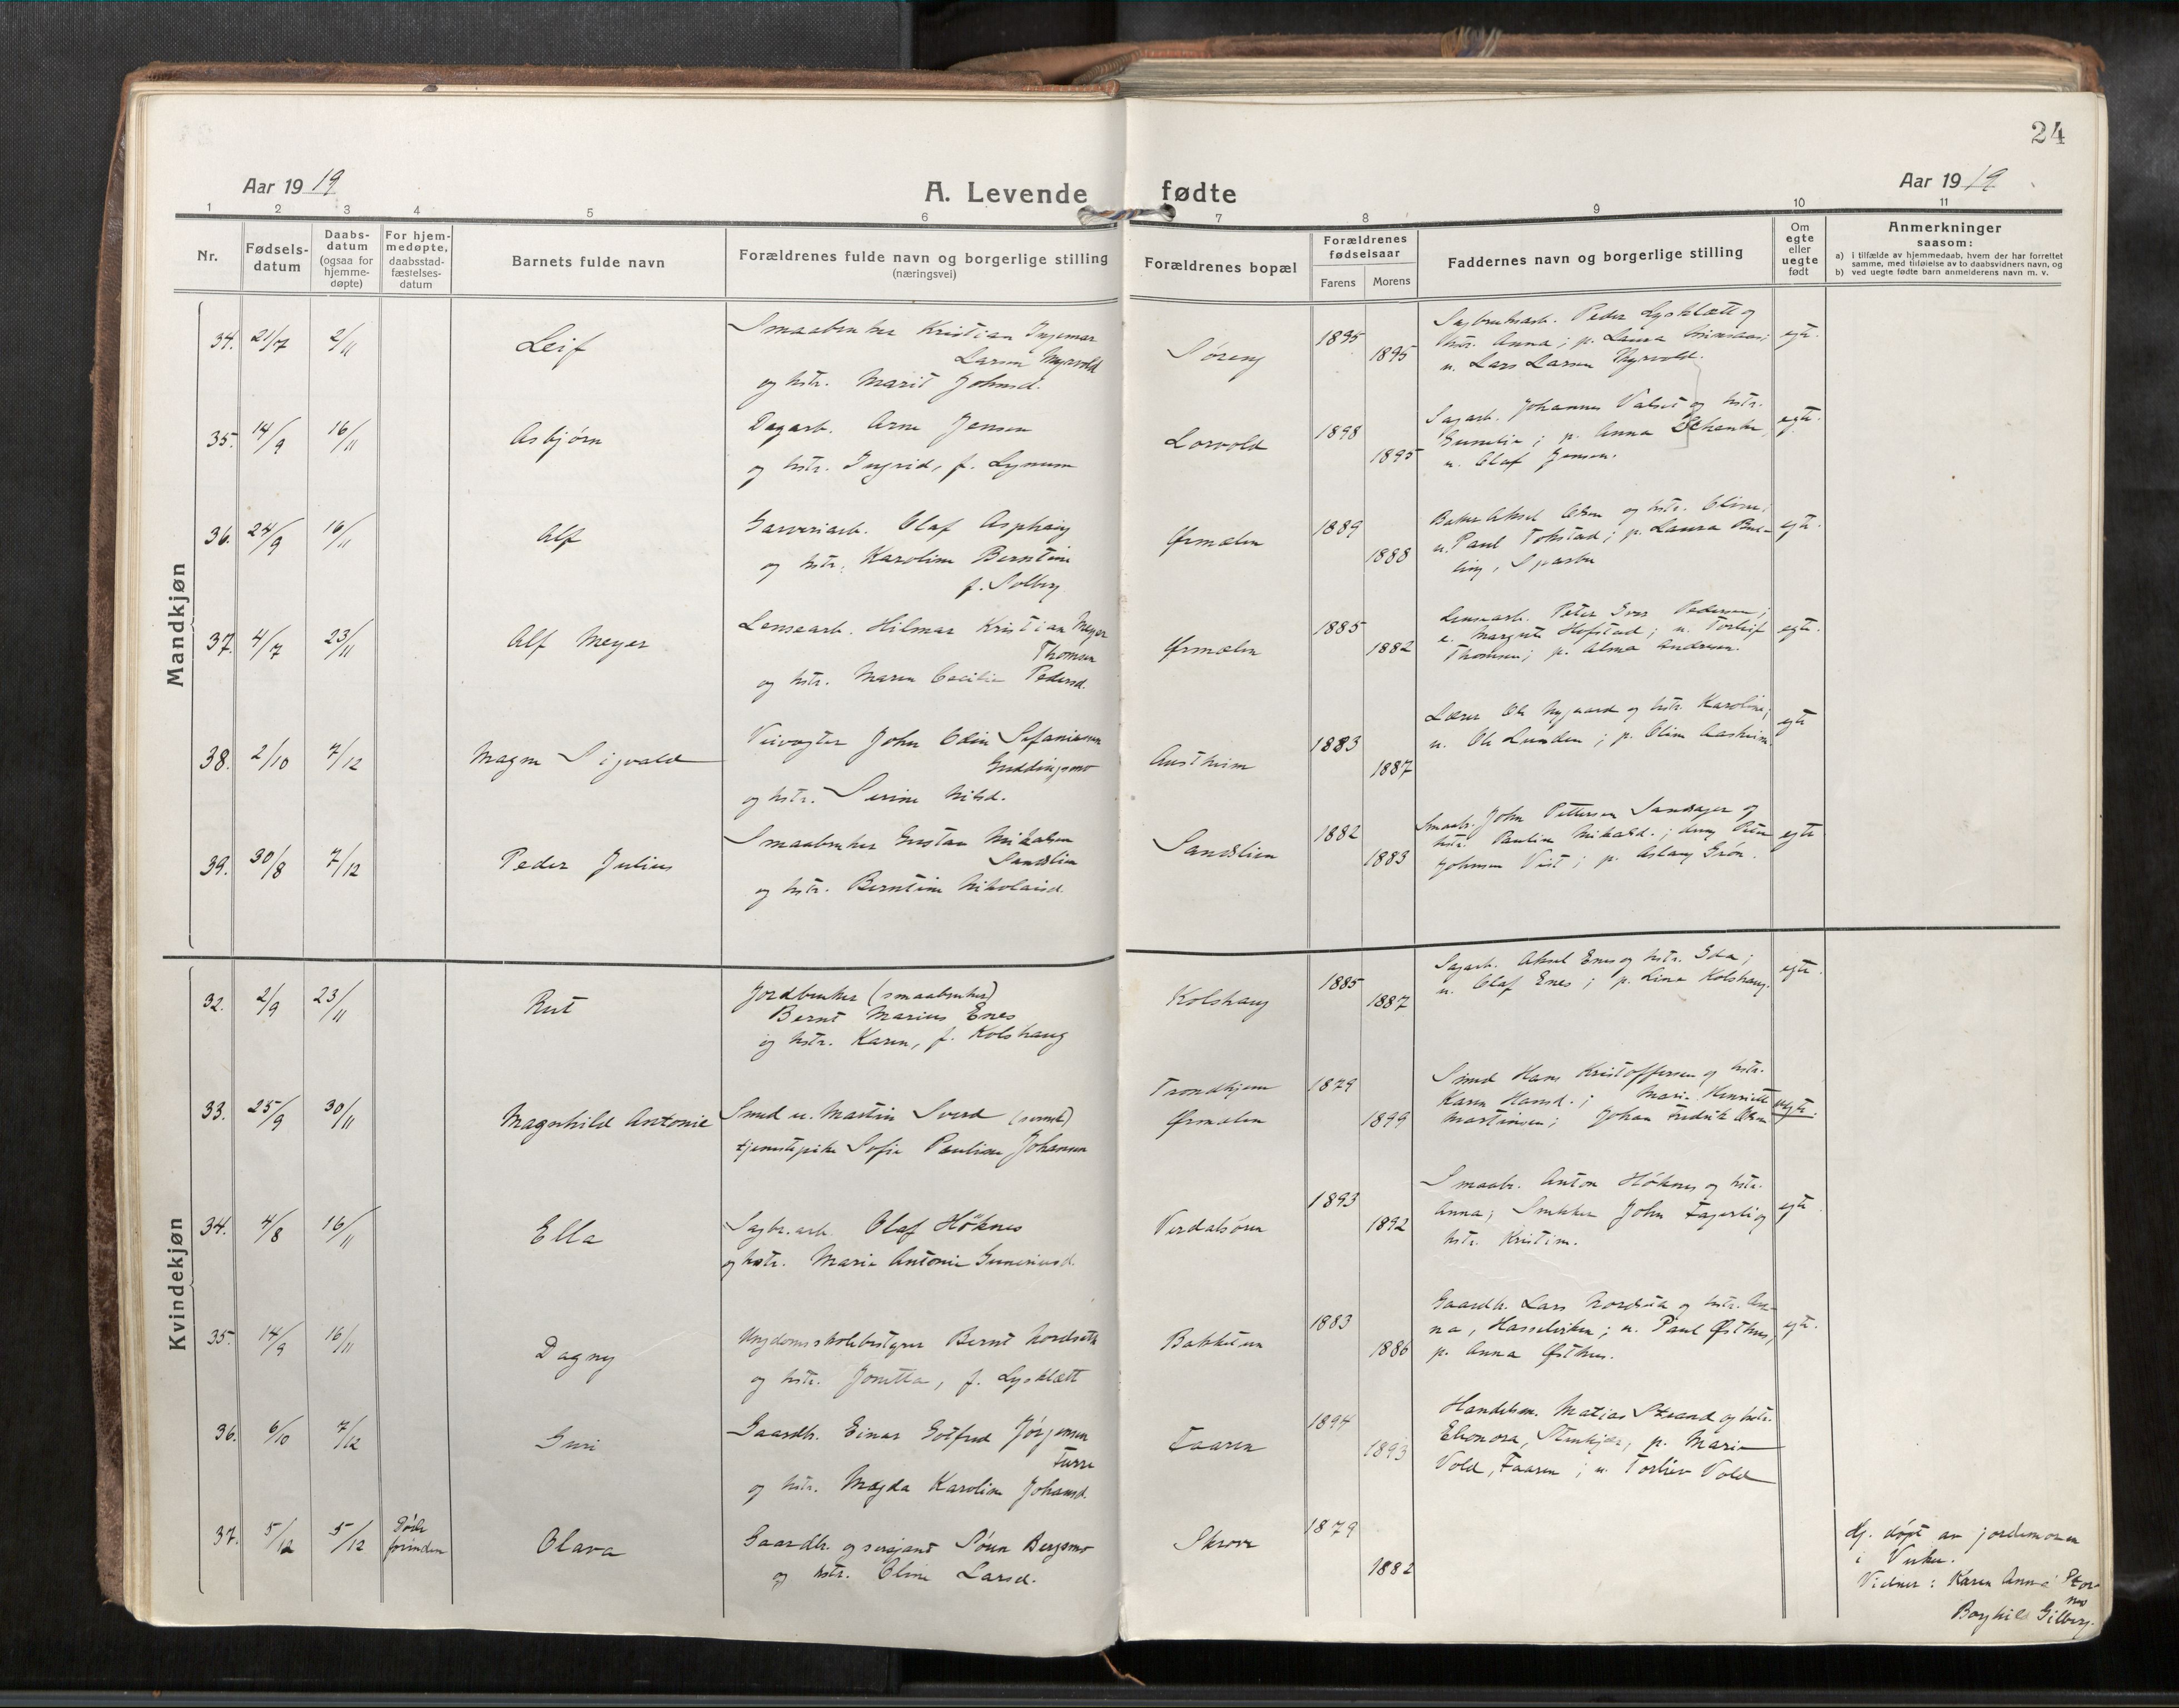 24
Aar 1919
A. Levende fødte
Aar 1919
1 2 3 4 5 6 7 8 9 10 11
Nr.
Fødsels-
datum
Daabs-
datum
(ogsaa for
hjemme-
døpte)
For hjem-
medøpte,
daabsstad-
fæstelses-
datum
Barnets fulde navn
Forældrenes fulde navn og borgerlige stilling
(næringsvei)
Forældrenes bopæl
Forældrenes
fødselsaar
Farens Morens
Faddernes navn og borgerlige stilling
Om
egte
eller
uegte
født
Anmerkninger
saasom:
a) i tilfælde av hjemmedaab, hvem der har forrettet
samme, med tilføielse av to daabsvidners navn, og
b) ved uegte fødte barn anmelderens navn m. v.
Mandkjøn
34. 21/7 2/11 Leif
Smaabruker Kristian Ingemar
Larsen Myrvold
og hstr. Marit Johnsd.
Søreng 1895 1895
Sagbruksarb. Peder Lysklætt og
hstr. Anna; p. Laura
u. Lars Larsen Myrvold.
egte.
35. 14/9 16/11 Asbjørn
Dagarb. Arne Jensen
og hstr. Ingrid, f. Lynum
Lorvold 1898 1895
Sagarb. Johannes Valset og hstr.
p. Anna
u. Olaf Jensen.
egte.
36. 24/9 16/11 Alf
Garveriarb. Olaf Asphaug
og hstr. Karoline Berntine
f. Solberg
Ørmelen 1889 1888
Baker Aksel Olsen og hstr. Oline;
u. Paul Tokstad; p. Laura
Sparbu
egte.
37. 4/7 23/11 Alf Meyer
Lensearb. Hilmar Kristian Meyer
Thomsen
og hstr. Maren Cecilie Pedersd.
Ørmelen 1885 1882
Lensearb. Peter Pedersen;
e. Margrete Hofstad; u. Torleif
Thomsen; p. Alma Andresen.
egte.
38. 2/10 7/12 Magne Sigvald
Veivogter John Odin Sefaniasen
Guddingsmo
og hstr. Serine Nilsd.
Austheim 1883 1887
Lærer Ole Nygaard og hstr. Karoline;
u. Ole Lunden; p. Oline Aasheim.
egte
39. 30/8 7/12 Peder Julius
Smaabruker Gustav Mikalsen
Sandslien
og hstr. Berntine Nikolaisd.
Sandslien 1882 1883
Smaabr. John Pettersen Sandager og
hstr. Pauline Mikalsd.; dreng
Johnsen Vist; p. Aslaug Grøn.
egte
Kvindekjøn
32. 2/9 23/11 Rut
Jordbruker (smaabruker)
Bernt Marius Enes
og hstr. Karen, f. Kolshaug
Kolshaug 1885 1887
Sagarb. Aksel Enes og hstr. Ida;
u. Olaf Enes; p. Lina Kolshaug.
egte.
33. 25/9 30/11 Magnhild Antonie
Smed u. Martin Sverd (svensk)
tjenestepike Sofie Pauline Johansen
Trondhjem
Ørmelen 1879 1899
Smed Hans Kristoffersen og hstr.
Karen Hansd.; Marie Henriette
Martinsen; Johan Fredrik Olsen
uegte.
34. 4/8 16/11 Ella
Sagbr.arb. Olaf Höknes
og hstr. Marie Antonie Guneriusd.
Verdalsøren 1893 1892
Smaabr. Anton Höknes og hstr.
Anna; Snekker John Fagerli og
hstr. Kristine.
egte
35. 14/9 16/11 Dagny
Ungdomsskolebestyrer Bernt Nordseth
og hstr. Jonetta, f. Lysklætt
Bakketun 1883 1886
Gaardbr. Lars Nordseth og hstr. An-
na, u. Paul Østhus,
p. Anna Østhus.
egte.
36. 6/10 7/12 Guri
Gaardbr. Einar Gotfred Jørgensen
Furre
og hstr. Magda Karoline Johansd.
Faaren 1894 1893
Handelsm. Matias Strand og hstr.
Eleonora, Stenkjær, p. Marie
Vold, Faaren; u. Torleiv Vold
37. 5/12 5/12 Døde
forinden
Olava
Gaardbr. og sersjant Søren Bergsmo
og hstr. Oline Larsd.
Skrove 1879 1882
Hj. døpt av jordmoren
i Vuku.
Vidner: Karen Anna Stor-
mo
Borghild Gilberg.